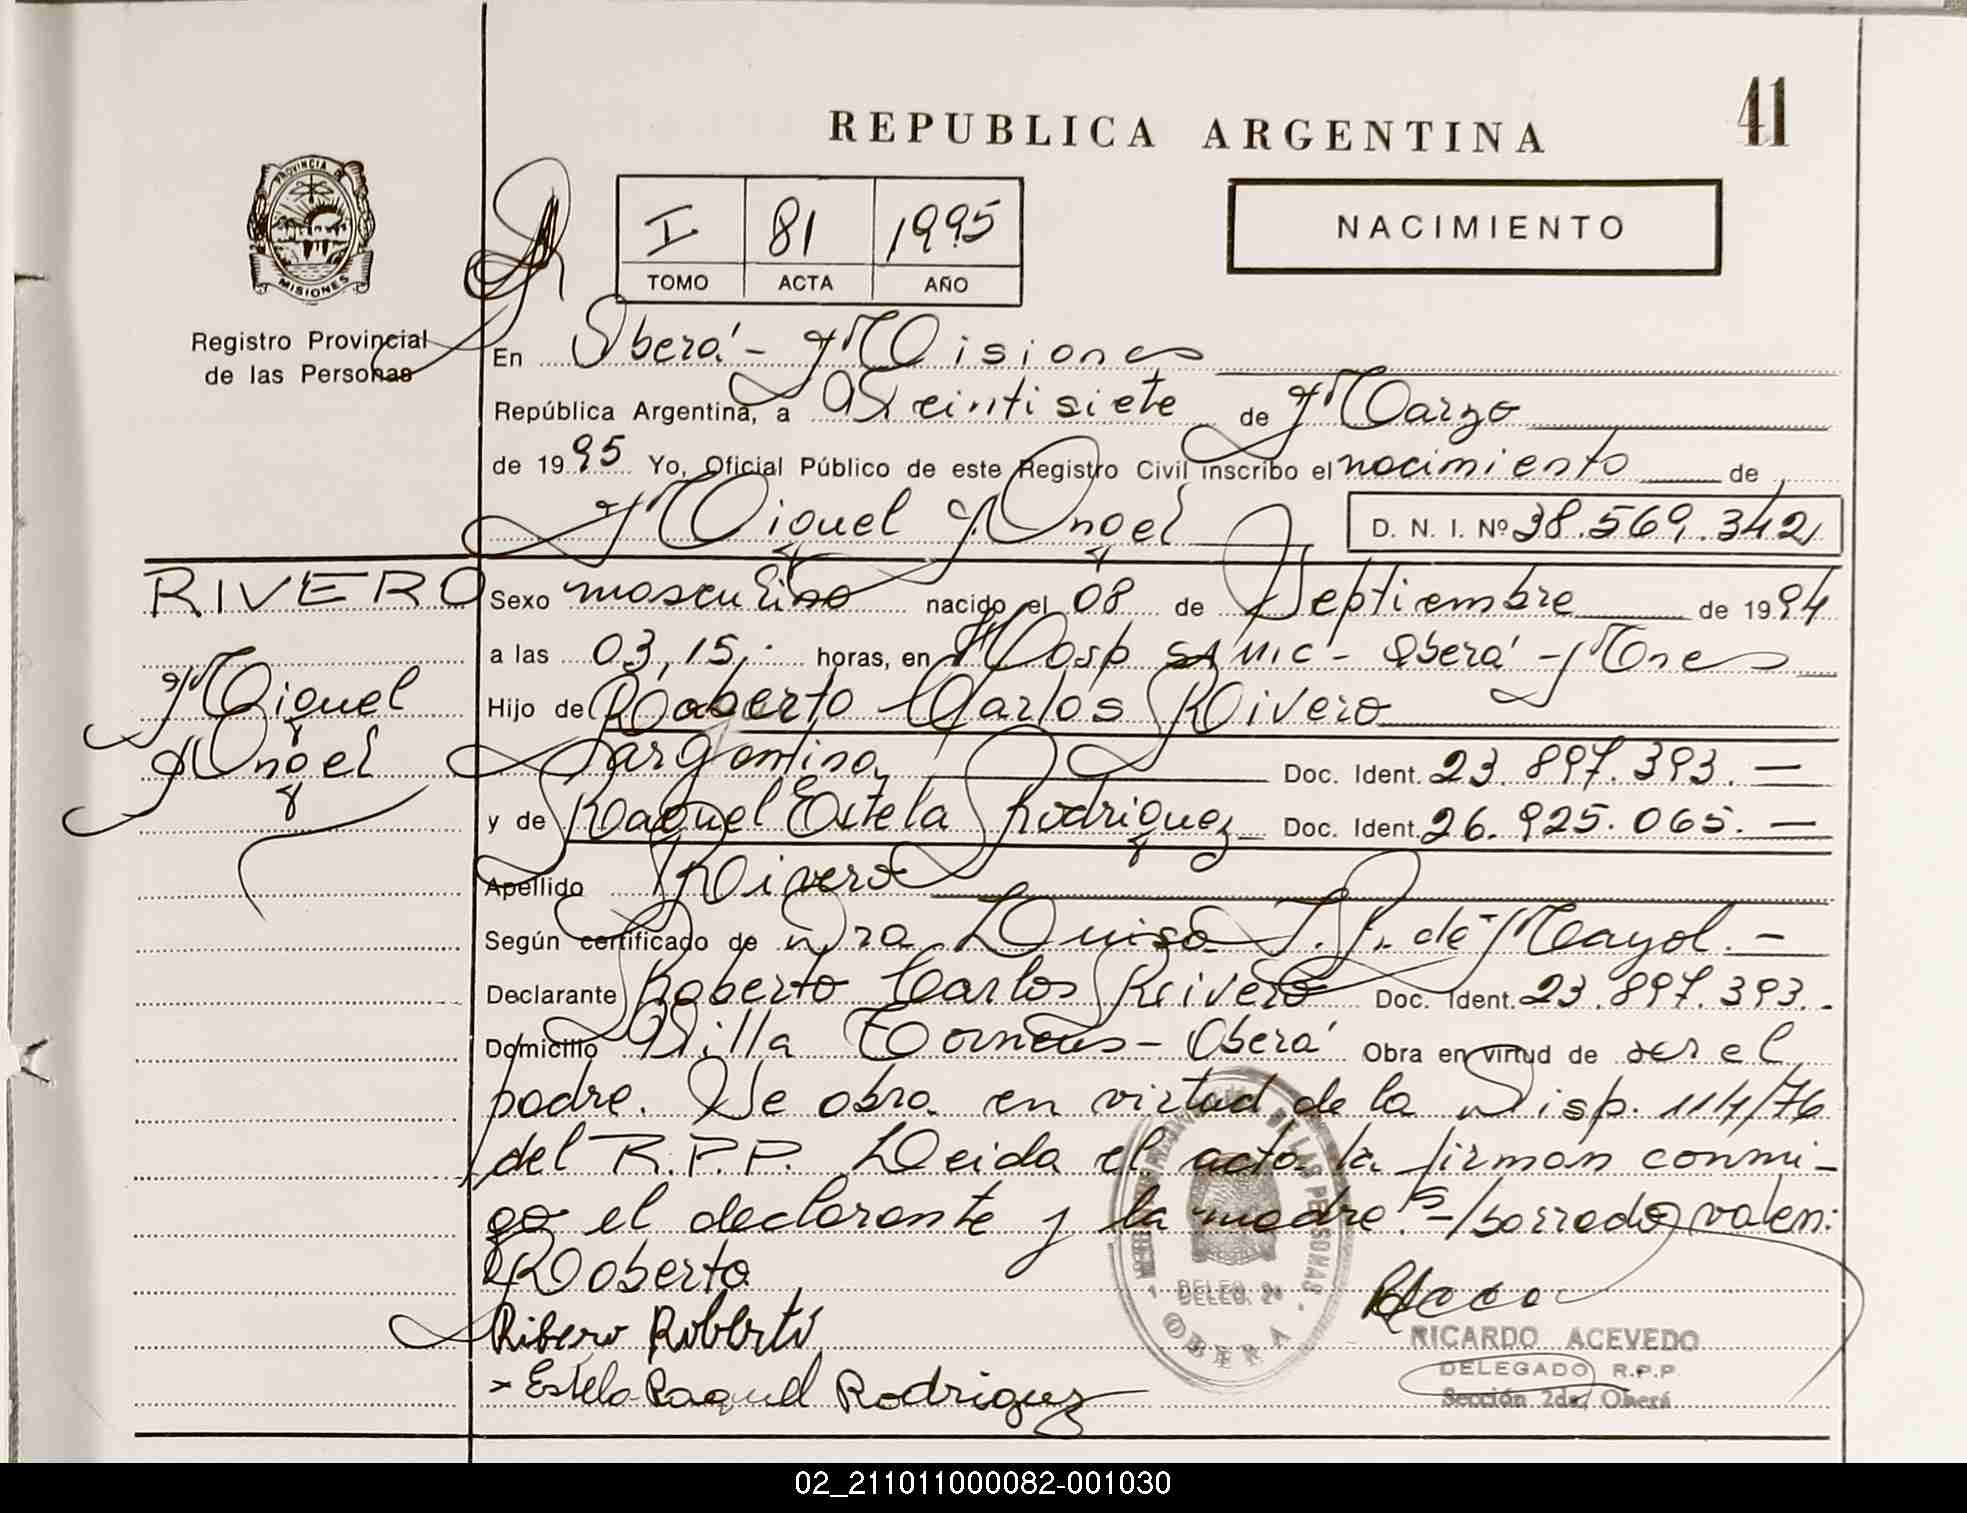 41
REPUBLICA ARGENTINA
NACIMIENTO
PROVINCIA DE
MISIONES
Registro Provincial
de las Personas
I 81 1995
TOMO ACTA AÑO
En Oberá - Misiones
República Argentina, a Veintisiete de Marzo
de 1995 Yo, Oficial Público de este Registro Civil inscribo el nacimiento de
Miguel Angel D. N. I. Nº 38.569.342
RIVERO
Miguel
Angel
Sexo masculino nacido el 08 de Septiembre de 1994
a las 03,15,- horas, en Hosp SAMIC - Oberá - Mnes
Hijo de Roberto Carlos Rivero
argentino, Doc. Ident. 23.897.393.-
y de Raquel Estela Rodriguez Doc. Ident. 26.925.065.-
Apellido Rivero
Según certificado de Dra Luisa de Mayol.-
Declarante Roberto Carlos Rivero Doc. Ident. 23.897.393.-
Domicilio Villa - Oberá Obra en virtud de ser el
padre. Se obra en virtud de la Disp. 114/76
del R.P.P. Leida el acta la firman conmi-
go el declarante y la madre.- /borrados valen:
Roberto
Ribero Roberto
x Estela Raquel Rodriguez
DE LAS PERSONAS
DELEG. 2ª
OBERA
RICARDO ACEVEDO
DELEGADO R.P.P.
Sección 2da, Oberá
02_211011000082-001030